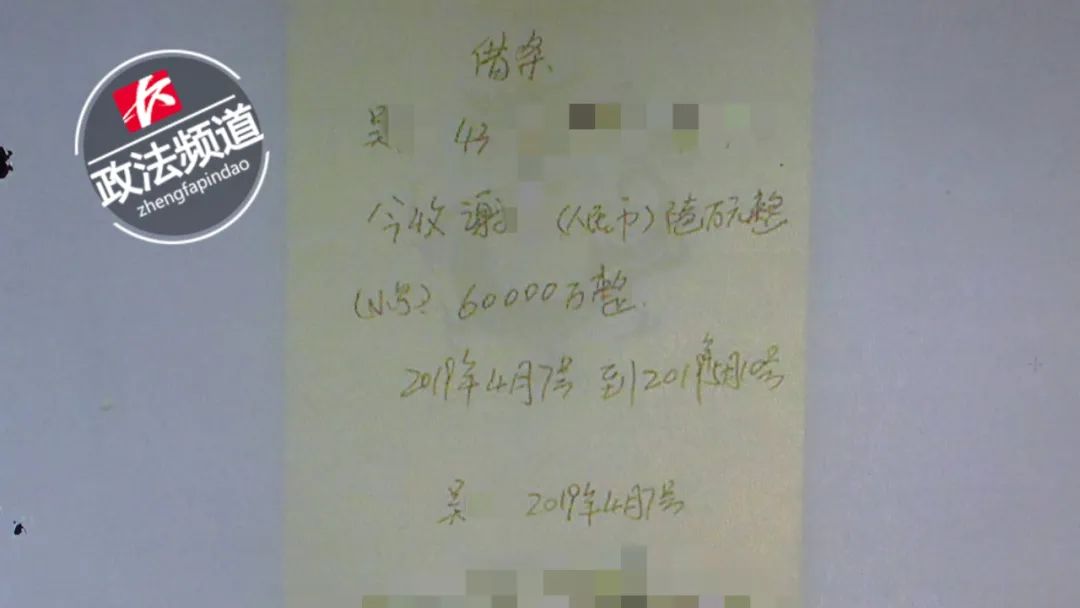 政法频道
zhengfapindao
借条
吴 43
今收谢 (人民币)陆万元整
(小写) 60000万整.
2019年4月7号 到2019年5月10号
吴 2019年4月7号